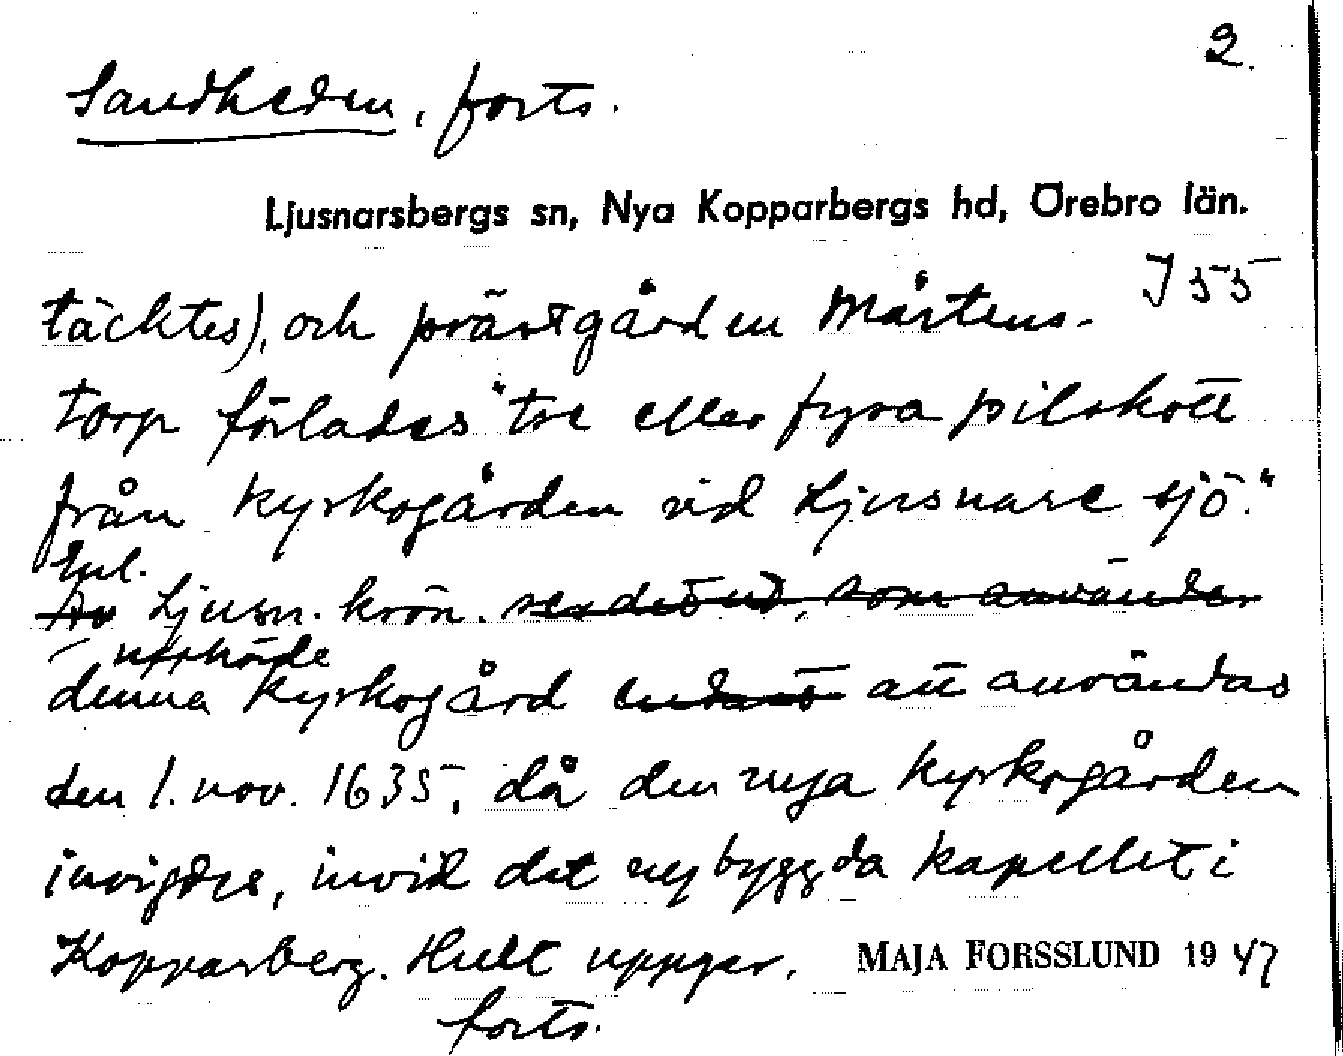 2.
Sandheden, forts.
Ljusnarsbergs sn, Nya Kopparbergs hd, Örebro län.
I 55
täcktes), och prästgården Mårtens-
torp förlades "tre eller fyra pilskott
från kyrkogården vid Ljusnare sjö."
Enl.
Av Ljusn. krön. som använder
upphörde
denna kyrkogård endast att användas
den 1. nov. 1635, då den nya kyrkogården
invigdes, invid det nybyggda kapellet i
Kopparberg. Hult uppger,
MAJA FORSSLUND 1947
forts.